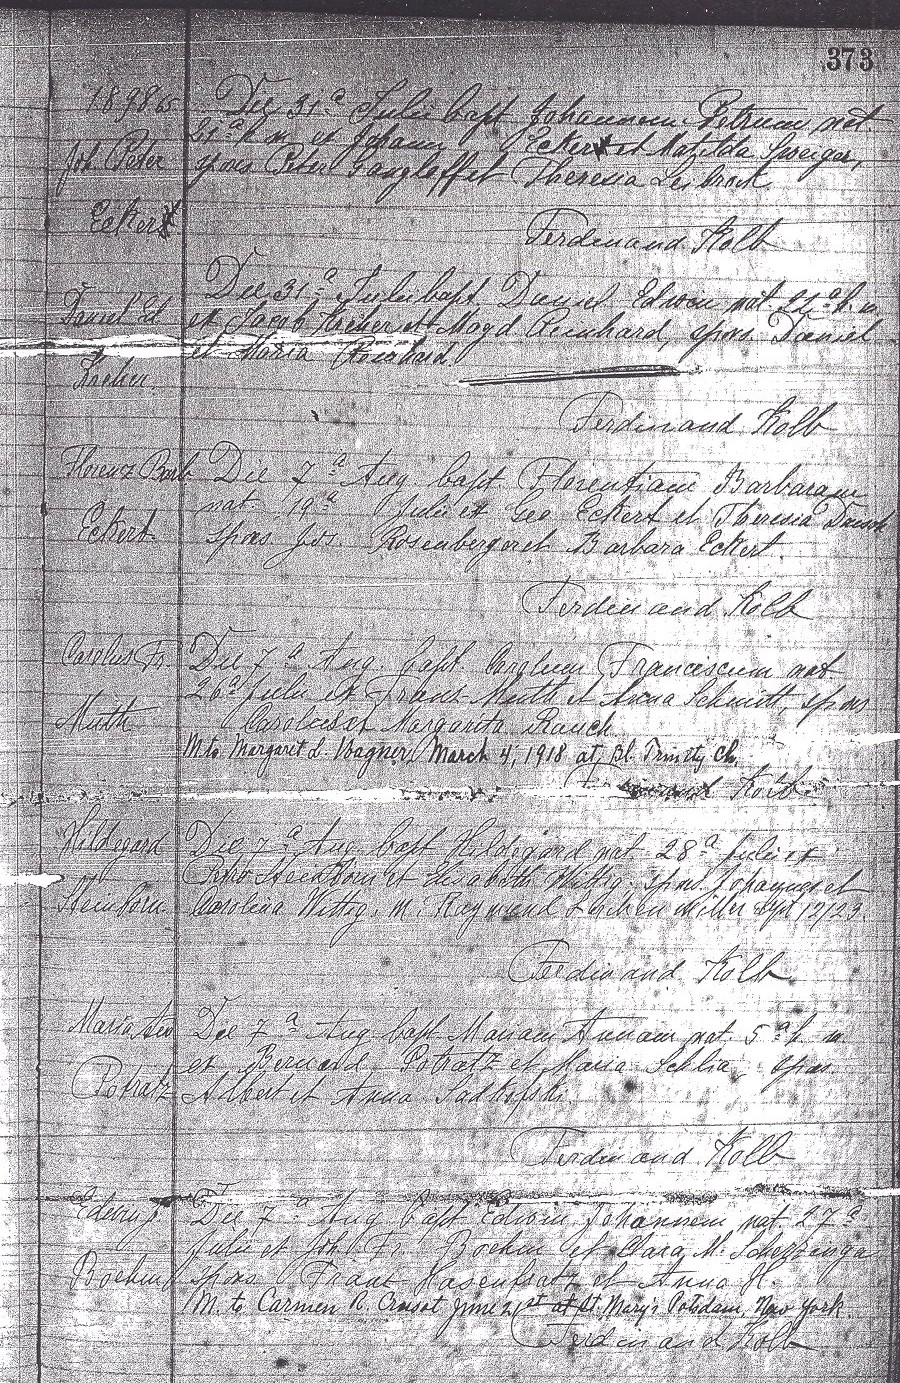 373
1898
Joh Peter
Eckert
Die 31ª Julii bapt Johannem Petrum nat.
21ª h. m. ex Johann Eckert et Matilda
spons Peter et Theresia
Ferdinand Kolb
Daniel Ed
Kreher
Die 31ª Julii bapt. Daniel Edwin nat. 21ª h. m
ex Jacob Kreher et Magd Reinhard, spons. Daniel
et Maria Reinhard.
Ferdinand Kolb
Florenz Barb
Eckert
Die 7ª Aug bapt. Florentiam Barbaram
nat. 19ª Julii ex Geo Eckert et Theresia
spons Jos. Rosenberger et Barbara Eckert.
Ferdinand Kolb
Carolus Fr.
Muth
Die 7ª Aug. bapt. Carolum Franciscum nat
26ª Julii ex Franz Muth et Anna Schmitt, spons
Carolus et Margarita Rauch
M. to. Margaret L. Wagner, March 4, 1918 at Bl. Trinity Ch.
Kolb
Hildegard
Steinborn
Die 7ª Aug. bapt Hildegard nat. 28ª Julii ex
Petro Steinborn et Elisabeth Wittig, spons. Johannes et
Carolina Wittig. m. Raymond Miller Sept 12/23.
Ferdinand Kolb
Maria An
Potratz
Die 7ª Aug bapt Mariam Annam nat. 5ª h. m.
ex Bernard Potratz et Maria spons.
Albert et Anna
Ferdinand Kolb
Boehm
Die 7ª Aug bapt Edwin Johannem nat. 27ª
Julii ex Joh. Fr. Boehm et Clara M.
spons Franz Hasenfratz et Anna H.
M. to Carmen R. June 21st at St. Mary's Potsdam, New York.
Ferdinand Kolb